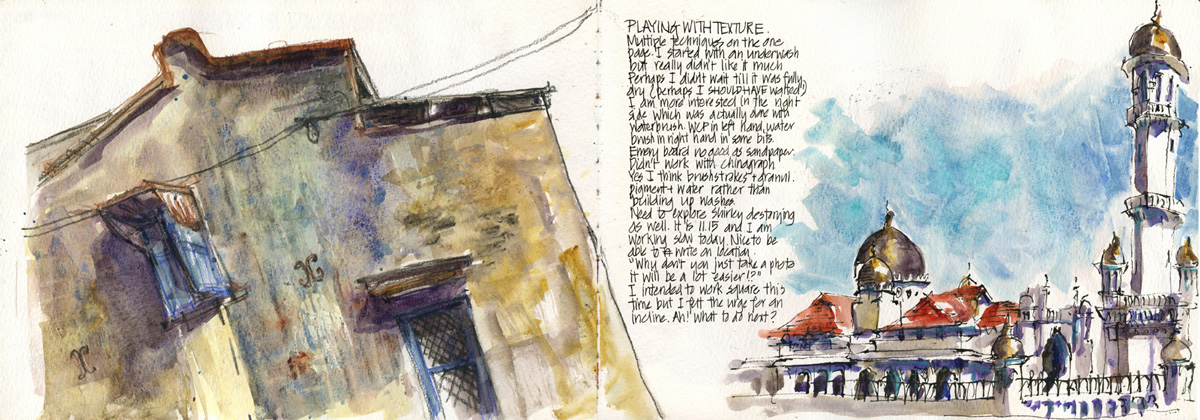 PLAYING WITH TEXTURE.
Multiple techniques on the one
page. I started with an underwash
but really didn't like it much
Perhaps I didn't wait till it was fully
dry (perhaps I SHOULD HAVE waited!)
I am more interested in the right
side which was actually done with
waterbrush. WCP in left hand, water
brush in right hand in some bits.
Emery board no good as sandpaper.
Didn't work with chinagraph
Yes I think brushstrokes + granul.
pigment + water rather than
building up washes
Need to explore Shirley destorying
as well. It is 11.15 and I am
working slow today. Nice to be
able to write on location.
"Why don't you just take a photo
it will be a lot easier!?"
I intended to work square this
time but I felt the urge for an
incline. Ah! What to do next?